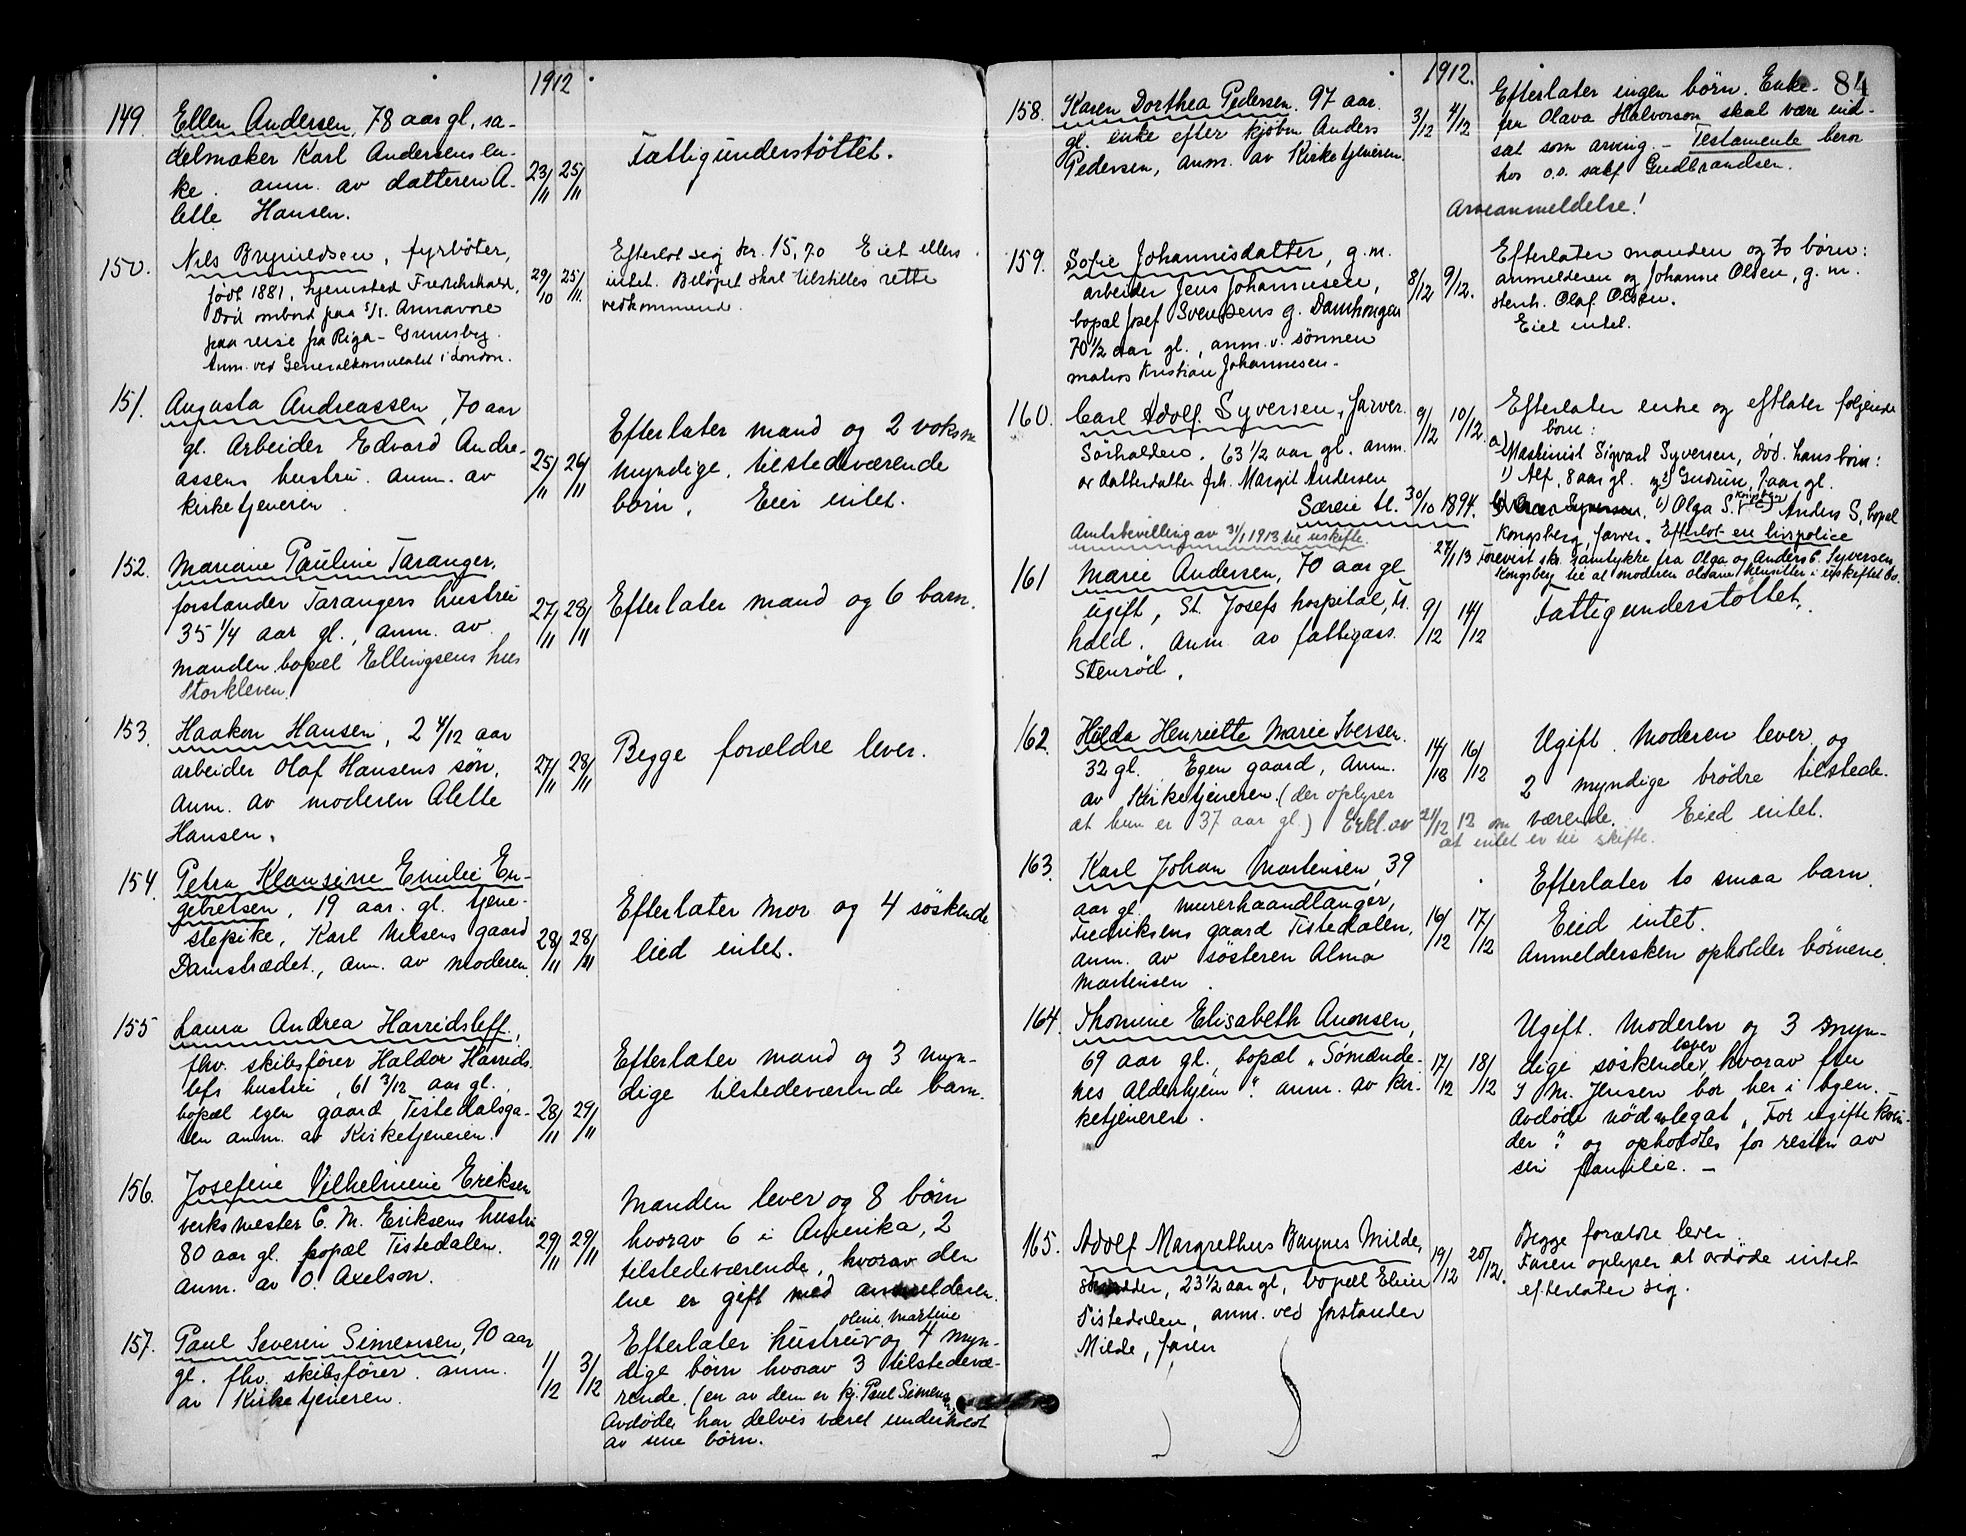 1912
149. Ellen Andersen, 78 aar gl, sa-
delmaker Karl Andersens en-
ke. anm. av datteren A-
lette Hansen.
23/11 25/11
Fattigunderstöttet.
150. Nils Brynildsen, fyrböter,
født 1881, hjemsted Fredrikshald,
Död ombord paa s/s. Annavore
paa reise fra Riga - Grimsby.
Anm. ved Generalkonsulatet i London.
29/10 25/11.
Efterlot sig kr. 15,70 Eiet ellers
intet. Belöpet skal tilstilles rette
vedkommend.
151. Augusta Andreassen, 70 aar
gl. Arbeider Edvard Andre-
assens hustru. anm. av
kirketjeneren
25/11 26/11
Efterlater mand og 2 voksne
myndige, tilstedeværende
börn. Eier intet.
152. Mariane Pauline Taranger,
forstander Tarangers hustru
35 1/4 aar gl., anm. av
manden. bopæl Ellingsens hus
Storkleven.
27/11 28/11
Efterlater mand og 6 barn.
153. Haakon Hansen, 2 4/12 aar
arbeider Olaf Hansens søn,
anm. av moderen Alette
Hansen.
27/11 28/11
Begge forældre lever.
154. Petra Klausine Emilie En-
gebretsen, 19 aar. gl. tjene-
stepike, Karl Nilsens gaard
Damstrædet., anm. av moderen.
28/11 28/11
Efterlater mor og 4 søskende
Eied intet.
155 Laura Andrea Harridsleff,
fhv. skibsfører Haldor Harrids
lefs hustru, 61 3/12 aar gl.,
bopæl egen gaard Tistedalsga-
ten anm. av Kirketjeneren.
28/11 29/11
Efterlater mand og 3 myn-
dige tilstedeværende barn.
156. Josefine Vilhelmine Eriksen
verksmester C. M. Eriksens hustru
80 aar gl. bopæl Tistedalen.
anm. av O. Axelson.
29/11 29/11
Manden lever og 8 börn
hvorav 6 i Amerika, 2
tilstedeværende, hvorav den
ene er gift med anmelderen.
157. Paul Severin Simensen, 90 aar
gl. fhv. skibsfører. anm.
av Kirketjeneren.
1/12 3/12
Oline Martine
Efterlater hustru og 4 myn-
dige börn hvorav 3 tilstedevæ-
rende. (en av dem er kj. Paul Simensen,
Avdøde har delvis været underholdt
av sine börn.
1912. 84
158. Karen Dorthea Pedersen. 97 aar.
gl. enke efter kjöbm Anders
Pedersen, anm. av Kirketjeneren
3/12 4/12
Efterlater ingen börn. Enke-
fru Olava Halvorson skal være ind-
sat som arving. - Testamente beror
hos o.r. sakf Gudbrandsen.
Arveanmeldelse!
159. Sofie Johannisdatter, g. m.
arbeider Jens Johannesen,
bopæl Josef Svendsens g. Damhaugen
70 1/2 aar gl., anm. v. sønnen
matros Kristian Johannesen.
8/12 9/12.
Efterlater manden og to börn:
anmelderen og Johanne Olsen, g. m.
stenh. Olaf Olsen.
Eiet intet.
160. Carl Adolf Syversen, farver
Sørhalden. 63 1/2 aar gl. anm.
av datterdatter frk. Margit Andersen
Særeie tl. 30/10 1894.
Amtsbevilling av 31/1 1913 til uskifte.
9/12 10/12.
Efterlater enke og eftlater følgende
börn:
a) Maskinist Sigvart Syversen, død. hans börn:
1) Alf, 8 aar gl. og 2) Gudrun, 7 aar gl.
Olga S. Anders S, bopæl
Kongsberg, farver. Efterlot en livspolice
27/1 13 Forevist skr. samtykke fra Olga og Anders C. Syversen
Kongsberg til at moderen hensitter i uskiftet bo.
161 Marie Andersen, 70 aar gl
ugift, St. Josefs hospital, Fr.
hald. Anm. av fattigass.
Stenrød.
9/12 14/12
Fattigunderstöttet.
162. Hilda Henriette Marie Iversen.
32 gl. Egen gaard, Anm.
av Kirketjeneren. (der oplyser
at hun er 37 aar gl.) Erkl. av 21/12 12 om
at intet er til skifte.
14/12 16/12
Ugift. Moderen lever og
2 myndige brödre tilstede-
værende. Eied intet.
163. Karl Johan Martinsen, 39
aar gl murerhaandlanger,
Fredriksens gaard Tistedalen,
anm. av söster​en Alma
Martinsen.
16/12 17/12
Efterlater to smaa barn.
Eied intet.
Anmeldersken opholder börnene.
164. Thomine Elisabeth Amonsen,
69 aar gl., bopæl "Sømænde-
nes Alderhjem". anm. av Kir-
ketjeneren.
17/12 18/12
Ugift. Moderen og 3 myn-
dige søskende lever, hvorav fru
I M. Jensen bor her i byen.
Avdøde nöd legat "For ugifte kvin-
der" og opholdtes for resten av
sin familie. -
165. Adolf Margrethus Baynes Milde,
23 1/2 aar gl, bopæl Elien
Tistedalen, anm. ved forstander
Milde, faren
19/12 20/12.
Begge forældre lever.
Faren oplyser at avdøde intet
efterlater sig.